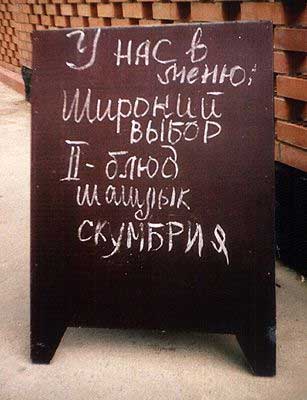 У нас в
меню:
Широкий
ВЫБОР
II - блюд
шашлык
СКУМБРИЯ